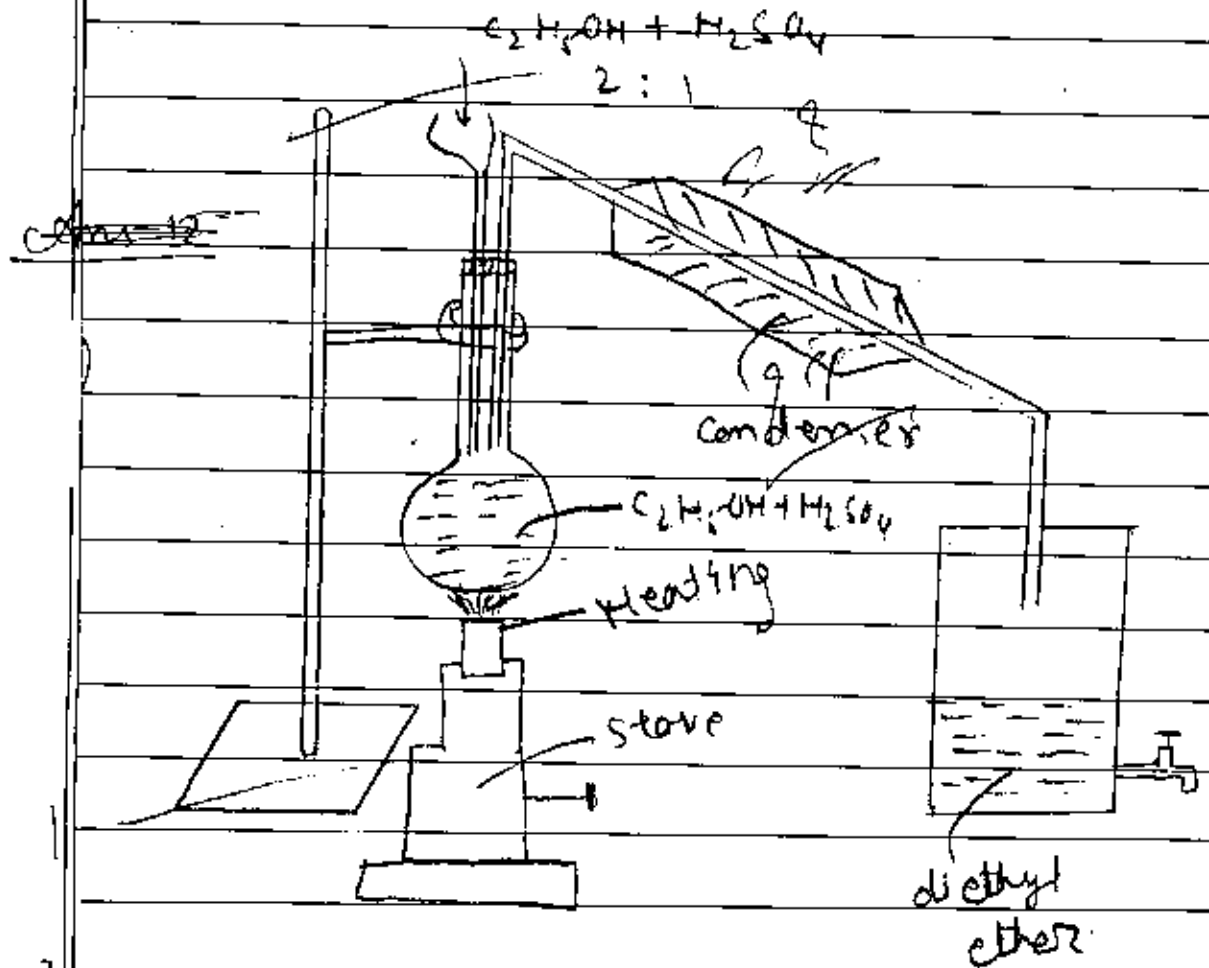 C₂H₅OH + H₂SO₄
2 : 1
Ans-12
condenser
C₂H₅OH + H₂SO₄
Heating
Stove
diethyl
ether